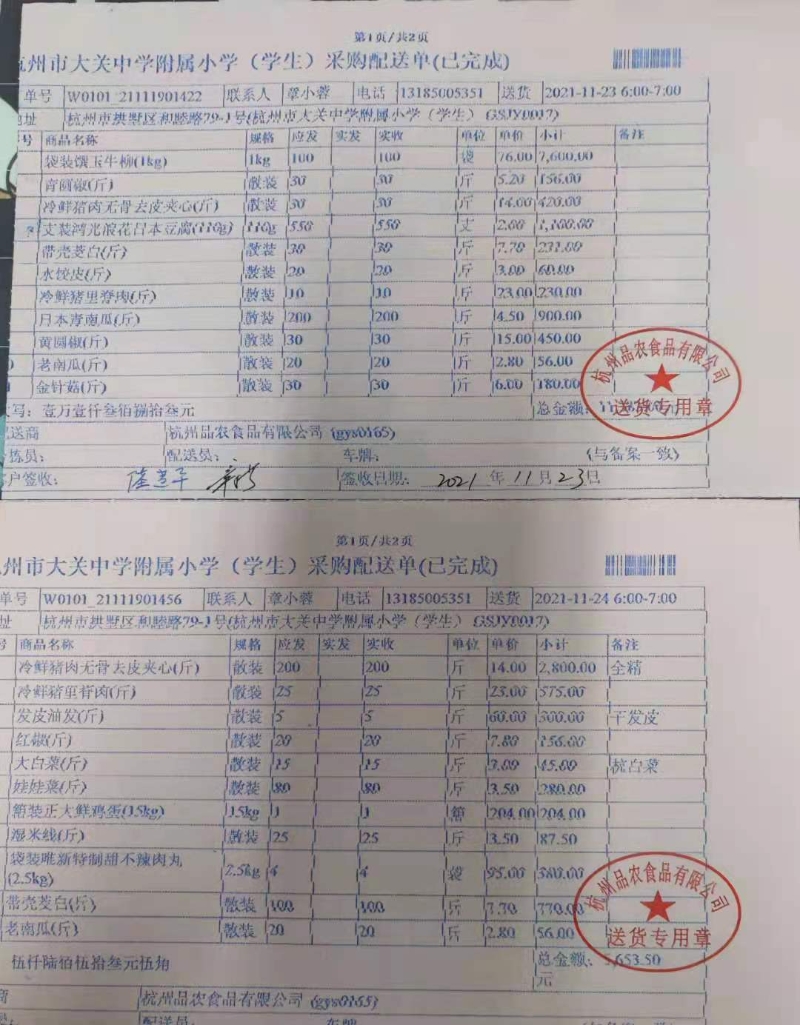 第1页/共2页
杭州市大关中学附属小学（学生）采购配送单(已完成)
单号 W0101_21111901422 联系人 章小蓉 电话 13185005351 送货 2021-11-23 6:00-7:00
地址 杭州市拱墅区和睦路79-1号(杭州市大关中学附属小学（学生） GSJY0017)
号 商品名称 规格 应发 实发 实收 单位 单价 小计 备注
袋装馔玉牛柳(1kg) 1kg 100 100 袋 76.00 7,600.00
青圆椒(斤) 散装 30 30 斤 5.20 156.00
冷鲜猪肉无骨去皮夹心(斤) 散装 30 30 斤 14.00 420.00
支装鸿光浪花日本豆腐(110g) 110g 550 550 支 2.00 1,100.00
带壳茭白(斤) 散装 30 30 斤 7.70 231.00
水饺皮(斤) 散装 20 20 斤 3.00 60.00
冷鲜猪里脊肉(斤) 散装 10 10 斤 23.00 230.00
日本青南瓜(斤) 散装 200 200 斤 4.50 900.00
黄圆椒(斤) 散装 30 30 斤 15.00 450.00
老南瓜(斤) 散装 20 20 斤 2.80 56.00
金针菇(斤) 散装 30 30 斤 6.00 180.00
大写：壹万壹仟叁佰捌拾叁元 总金额：
配送商 杭州品农食品有限公司 (gys0165)
拣员： 配送员： 车牌： (与备案一致)
客户签收： 签收日期： 2021 年 11 月 23 日
杭州品农食品有限公司
送货专用章
第1页/共2页
州市大关中学附属小学（学生）采购配送单(已完成)
单号 W0101_21111901456 联系人 章小蓉 电话 13185005351 送货 2021-11-24 6:00-7:00
址 杭州市拱墅区和睦路79-1号(杭州市大关中学附属小学（学生） GSJY0017)
号 商品名称 规格 应发 实发 实收 单位 单价 小计 备注
冷鲜猪肉无骨去皮夹心(斤) 散装 200 200 斤 14.00 2,800.00 全精
冷鲜猪里脊肉(斤) 散装 25 25 斤 23.00 575.00
发皮油发(斤) 散装 5 5 斤 60.00 300.00 干发皮
红椒(斤) 散装 20 20 斤 7.80 156.00
大白菜(斤) 散装 15 15 斤 3.00 45.00 杭白菜
娃娃菜(斤) 散装 80 80 斤 3.50 280.00
箱装正大鲜鸡蛋(15kg) 15kg 1 1 箱 204.00 204.00
湿米线(斤) 散装 25 25 斤 3.50 87.50
袋装唯新特制甜不辣肉丸
(2.5kg) 2.5kg 4 4 袋 95.00 380.00
带壳茭白(斤) 散装 100 100 斤 7.70 770.00
老南瓜(斤) 散装 20 20 斤 2.80 56.00
伍仟陆佰伍拾叁元伍角 总金额：5,653.50
元
商 杭州品农食品有限公司 (gys0165)
配送员： 车牌
杭州品农食品有限公司
送货专用章